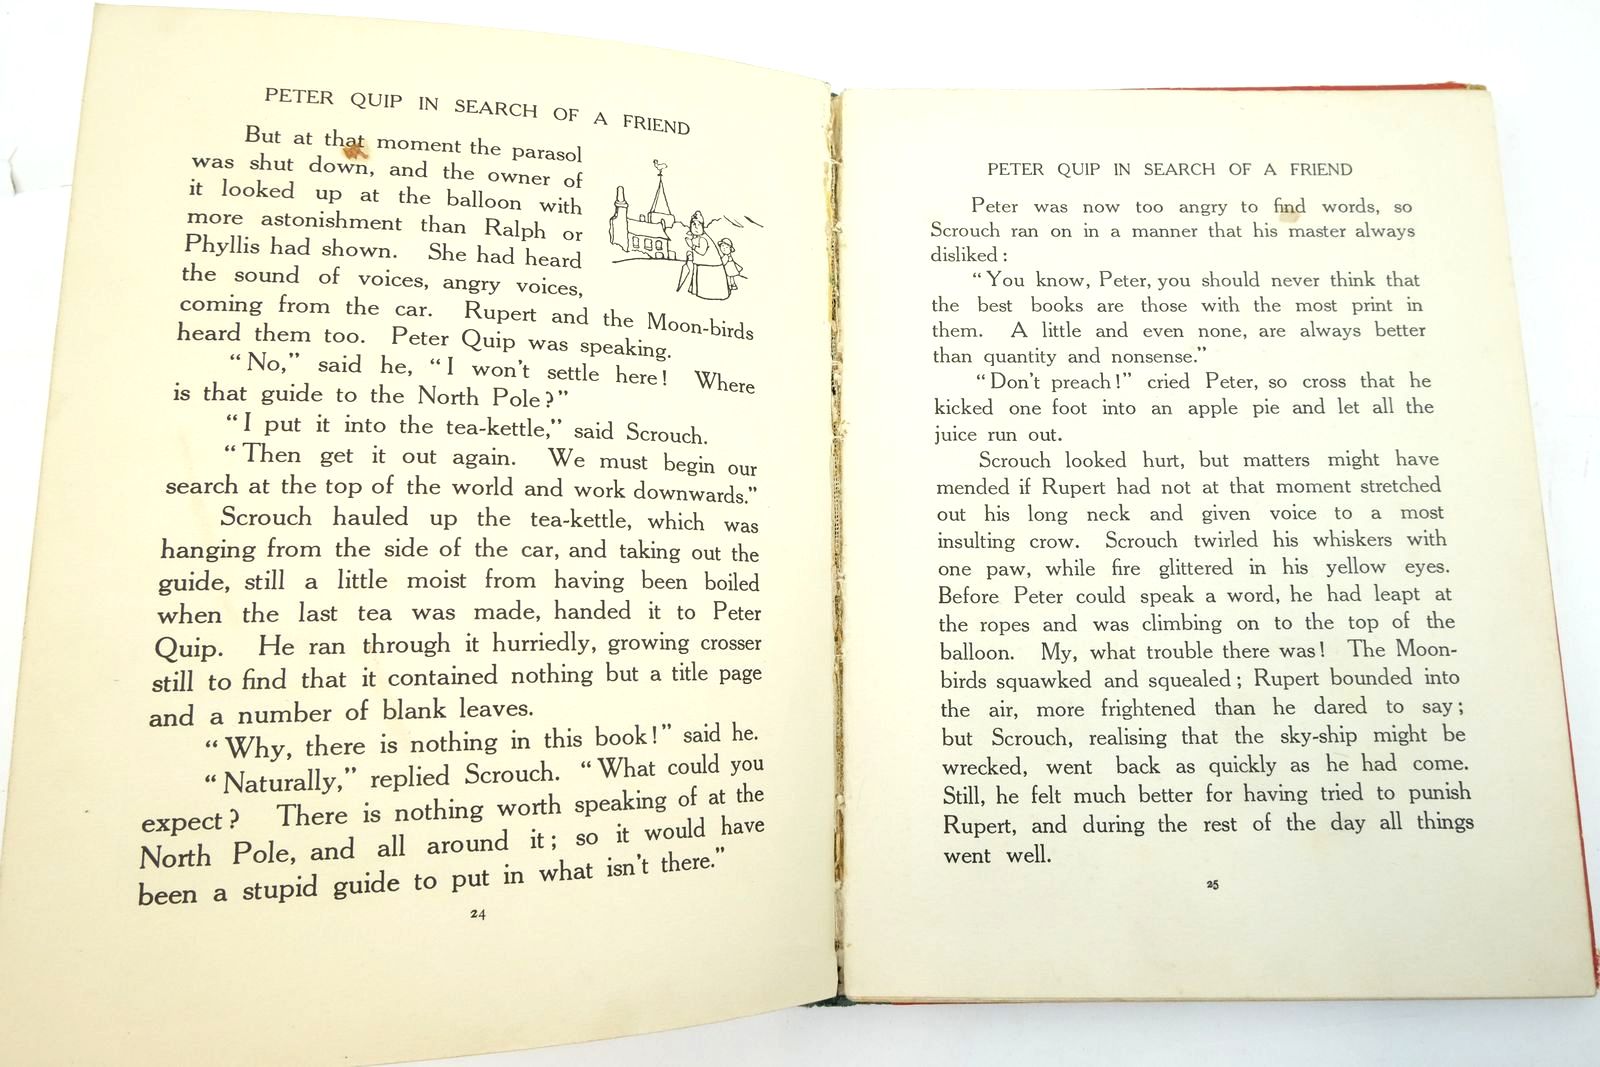 PETER QUIP IN SEARCH OF A FRIEND
But at that moment the parasol
was shut down, and the owner of
it looked up at the balloon with
more astonishment than Ralph or
Phyllis had shown. She had heard
the sound of voices, angry voices,
coming from the car. Rupert and the Moon-birds
heard them too. Peter Quip was speaking.
“No,” said he, “I won't settle here! Where
is that guide to the North Pole?”
“I put it into the tea-kettle,” said Scrouch.
“Then get it out again. We must begin our
search at the top of the world and work downwards.”
Scrouch hauled up the tea-kettle, which was
hanging from the side of the car, and taking out the
guide, still a little moist from having been boiled
when the last tea was made, handed it to Peter
Quip. He ran through it hurriedly, growing crosser
still to find that it contained nothing but a title page
and a number of blank leaves.
“Why, there is nothing in this book!” said he.
“Naturally,” replied Scrouch. “What could you
expect? There is nothing worth speaking of at the
North Pole, and all around it; so it would have
been a stupid guide to put in what isn't there.”
24
PETER QUIP IN SEARCH OF A FRIEND
Peter was now too angry to find words, so
Scrouch ran on in a manner that his master always
disliked:
“You know, Peter, you should never think that
the best books are those with the most print in
them. A little and even none, are always better
than quantity and nonsense.”
“Don't preach!” cried Peter, so cross that he
kicked one foot into an apple pie and let all the
juice run out.
Scrouch looked hurt, but matters might have
mended if Rupert had not at that moment stretched
out his long neck and given voice to a most
insulting crow. Scrouch twirled his whiskers with
one paw, while fire glittered in his yellow eyes.
Before Peter could speak a word, he had leapt at
the ropes and was climbing on to the top of the
balloon. My, what trouble there was! The Moon-
birds squawked and squealed; Rupert bounded into
the air, more frightened than he dared to say;
but Scrouch, realising that the sky-ship might be
wrecked, went back as quickly as he had come.
Still, he felt much better for having tried to punish
Rupert, and during the rest of the day all things
went well.
25